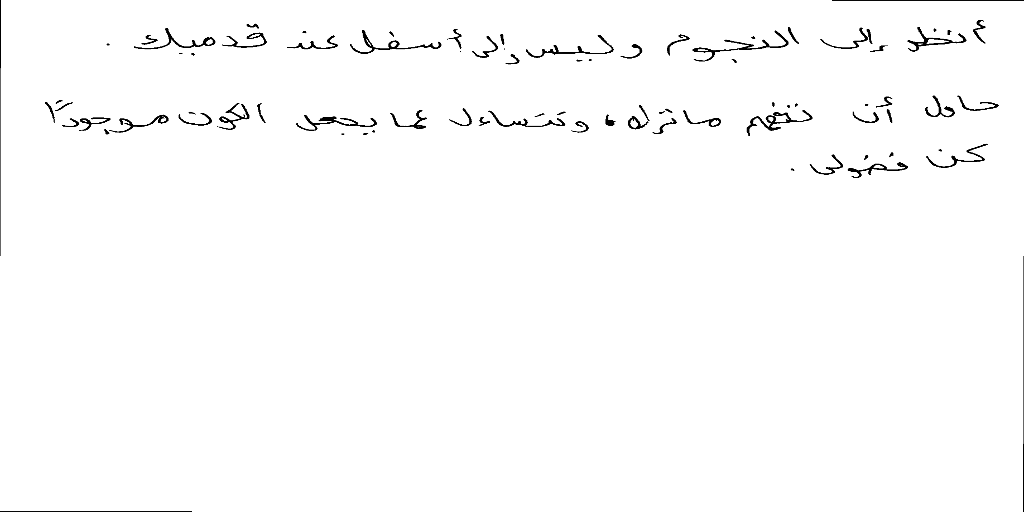 أنظر إلى النجوم وليس إلى أسفل عند قدميك .
حاول أن تتفهم ماترك، وتتساءل عما يجعل الكون موجودًا
كن فضولى .